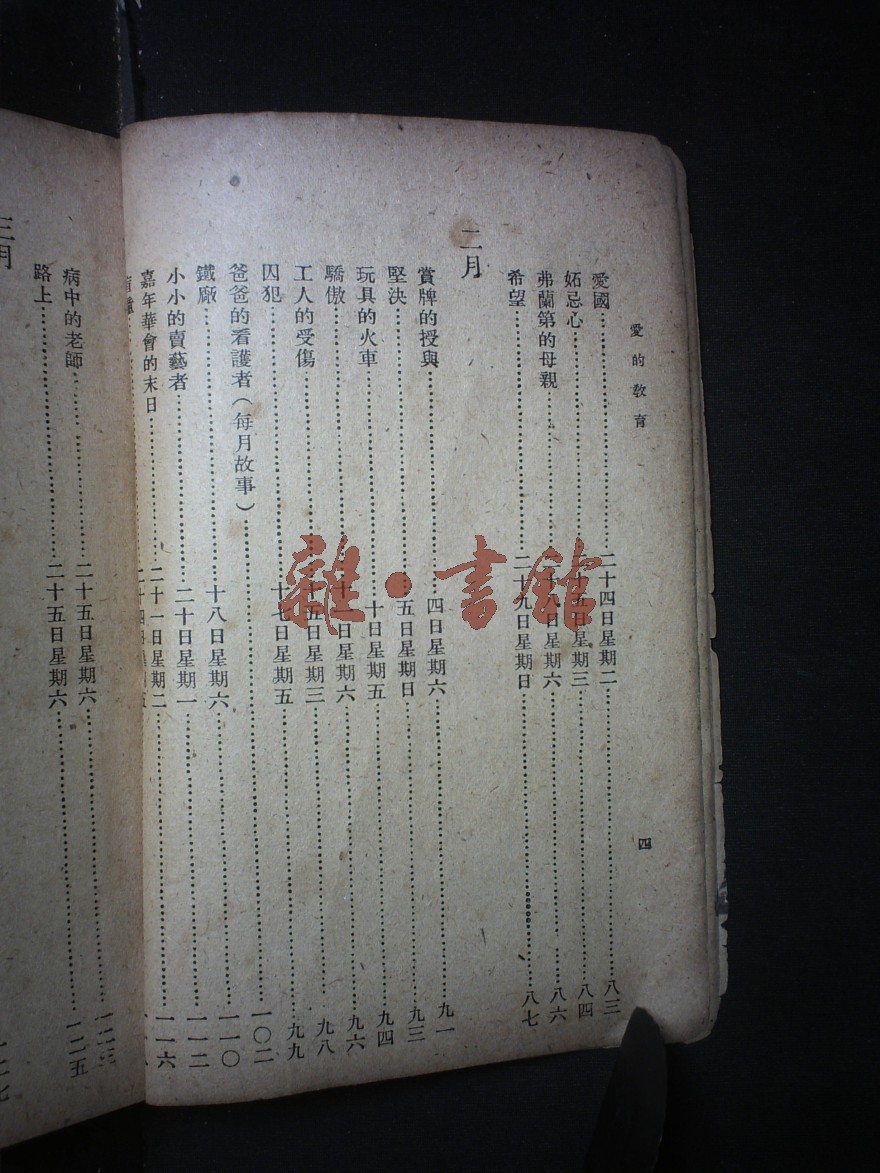 愛的教育
四
愛國……二十四日星期二……八三
妬忌心……二十五日星期三……八四
弗蘭第的母親……二十八日星期六……八六
希望……二十九日星期日……八七
二月
賞牌的授與……四日星期六……九一
堅決……五日星期日……九三
玩具的火車……十日星期五……九四
驕傲……十一日星期六……九六
工人的受傷……十五日星期三……九八
囚犯……十七日星期五……九九
爸爸的看護者(每月故事)……一〇二
鐵廠……十八日星期六……一一〇
小小的賣藝者……二十日星期一……一一二
嘉年華會的末日……二十一日星期二……一一六
病中的老師……二十五日星期六……一二三
路上……二十五日星期六……一二五
三月
雜·書館